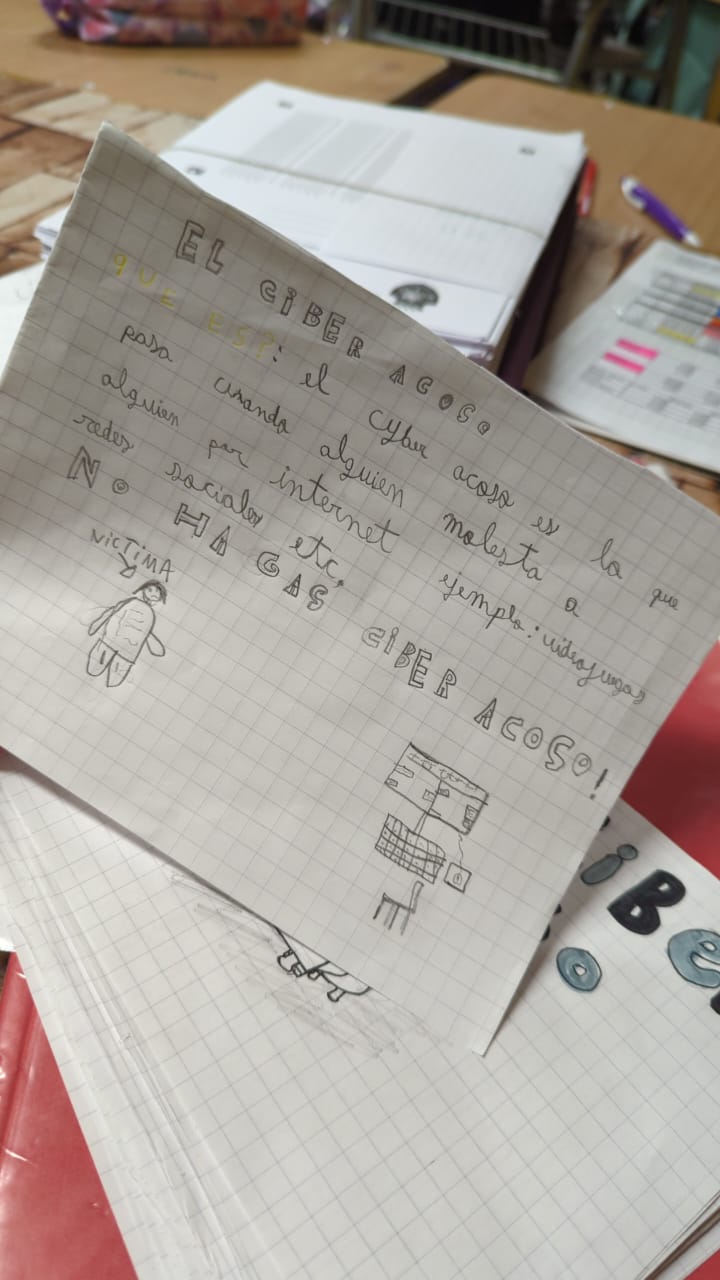 EL CiBER ACOSO
QUE ES?: el cyber acoso es lo que
pasa cuando alguien molesta a
alguien por internet ejemplo: videojuegos
redes sociales etc.
No HAGAS CiBER ACOSO!
VICTIMA
iBe
o